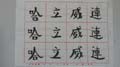 哈 立 威 連
哈 立 威 連
哈 立 威 連